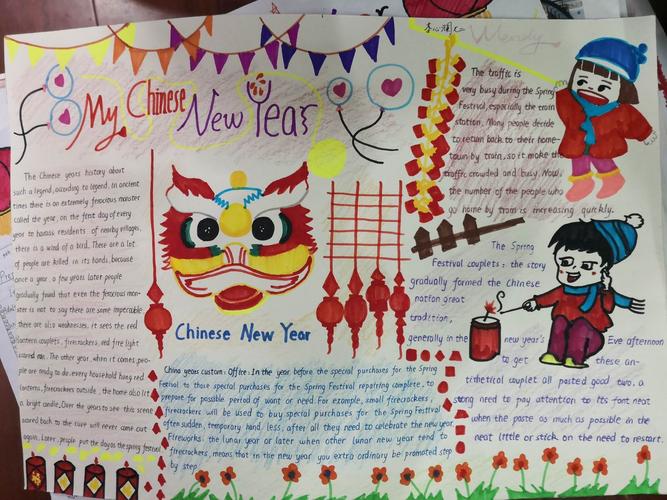 李心斓
Wendy
My Chinese
New Year
The Chinese years history about
such a legend, according to legend, in ancient
times there is an extremely ferocious monster
called the year, on the first day of every
year to harass residents of nearby villages,
there is a wind of a bird. There are a lot
of people are killed in its hands, because
once a year, a few years later people
gradually found that even the ferocious mon-
ster is not to say there are some impeccable
there are also weaknesses, it sees the red
lantern couplets, firecrackers, red fire light
scared me. The other year, when it comes, peo-
ple are ready to do, every household hung red
lanterns, firecrackers outside, the home also lit
a bright candle. Over the years to see this scene
scared back to the cure will never come out
again. Later, people put the day as the spring festival
Chinese New Year
China years custom: Office: In the year before the special purchases for the Spring
Festival to those special purchases for the Spring Festival repairing complete, to
prepare for possible period of want or need. For example, small firecrackers,
firecrackers will be used to buy special purchases for the Spring Festival
often sudden, temporary hand, less, after all they need to celebrate the new year.
Fireworks: the lunar year or later when other lunar new year tend to
firecrackers, means that in the new year you extra ordinary be promoted step
by step
The traffic is
very busy during the Spring
Festival, especially the train
station. Many people decide
to return back to their home-
town by train, so it make the
traffic crowded and busy. Now,
the number of the people who
go home by train is increasing quickly.
The Spring
Festival couplets: the story
gradually formed the Chinese
nation great
tradition,
generally in the new year's Eve afternoon
to get these an-
tithetical couplet all pasted good two, a
stong need to pay attention to its font neat
when the paste as much as possible in the
neat little or stick on the need to restart.